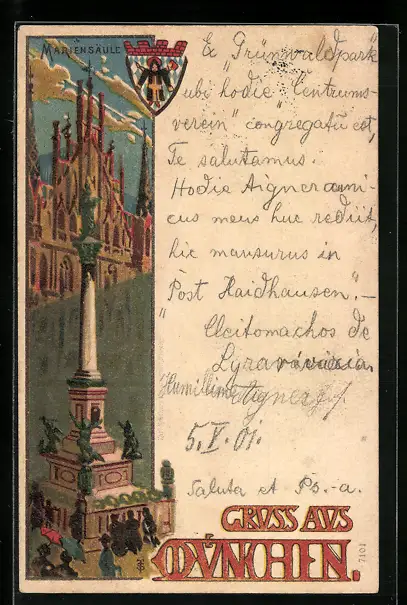 MARIENSÄULE
Ex "Grünwaldpark"
ubi hodie "Centrums-
verein" congregatū est,
Te salutamus.
Hodie Aigner ami-
cus meus huc rediit,
hic mansurus in
"Post Haidhausen".-
Cleitomachos de
Humillime Aigner
5.V.01.
Saluta et Ps.-a.
GRUSS AUS
MÜNCHEN.
7101